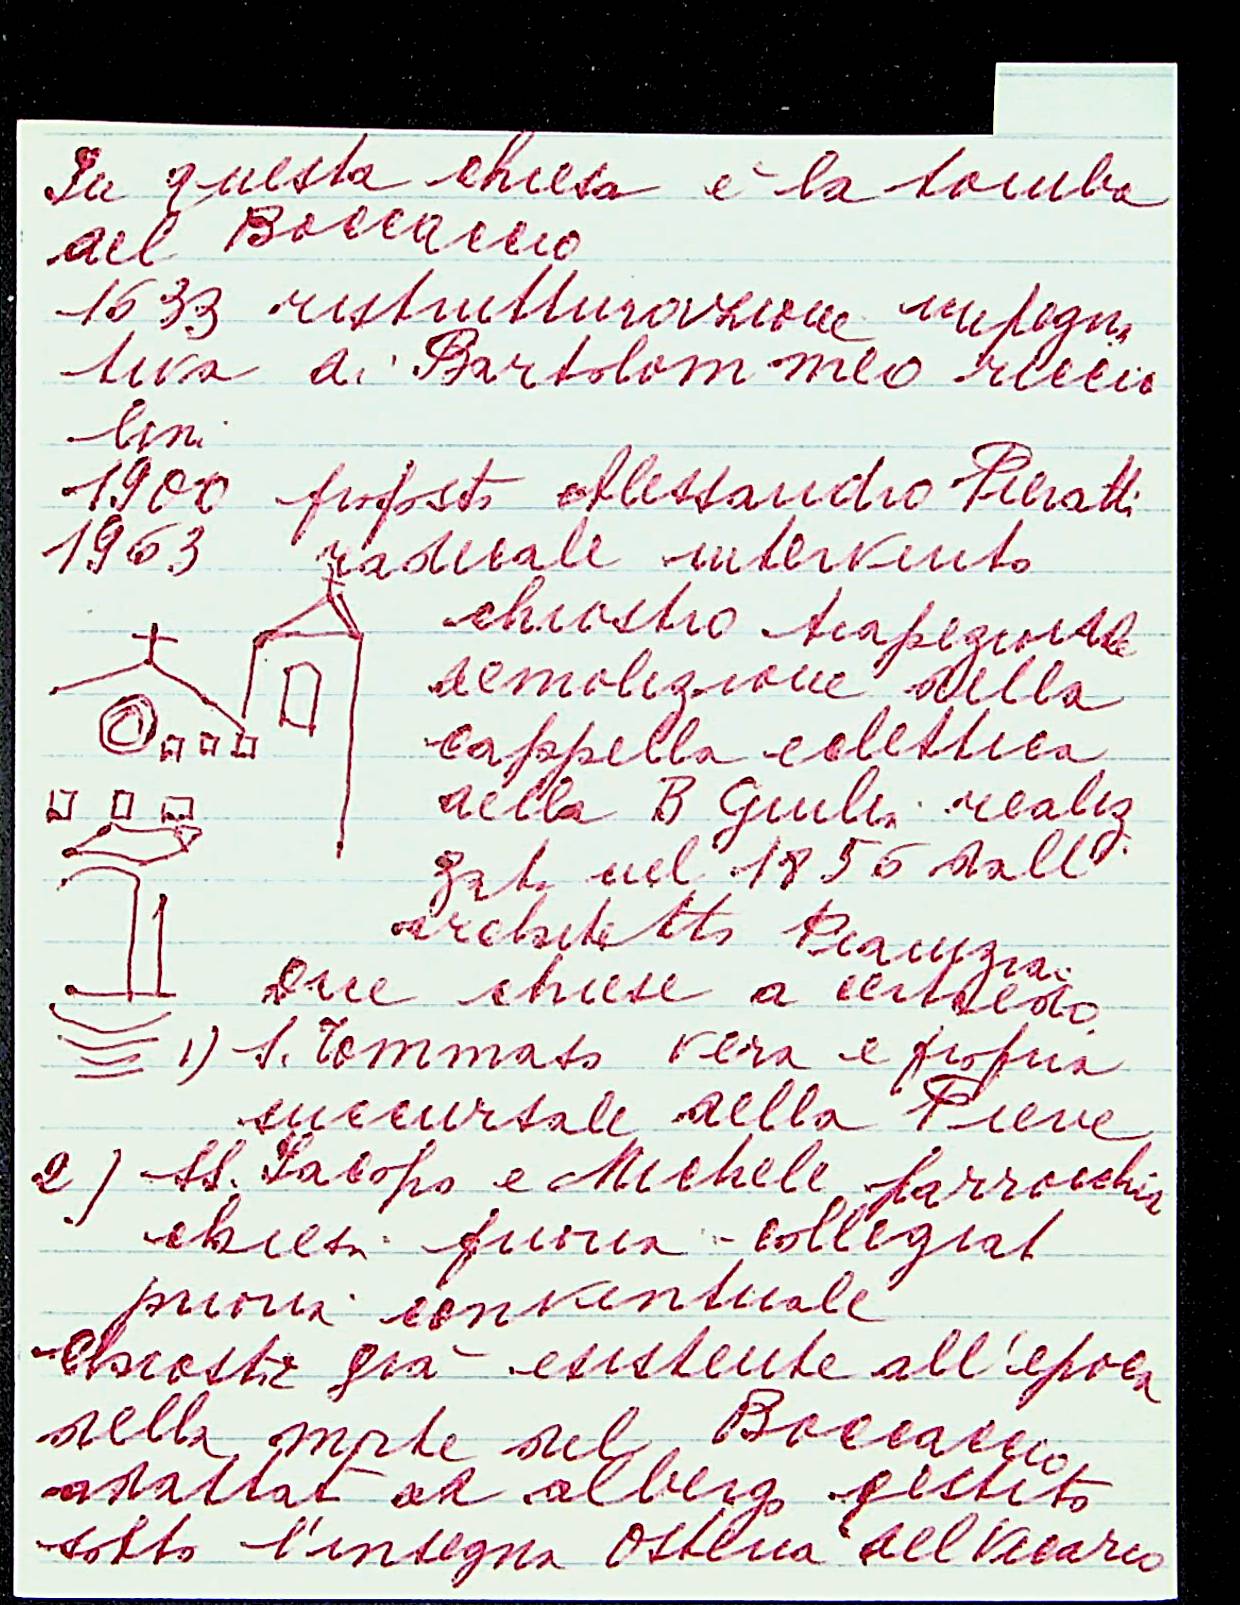 In questa chiesa è la tomba
del Boccaccio
1633 ristrutturazione impegna
tiva di Bartolom meo riccio
lini
1900 proposto Alessandro Pieratti
1963 radicale intervento
chiostro trapezoidale
demolizione della
cappella eclettica
della B Giulia realiz
zata nel 1856 dall
architetto
Due chiese a certaldo
1) S. Tommaso vera e propria
succursale della Pieve
2) SS. Iacopo e Michele parrocchia
chiesa priora - collegiat
priora conventuale
Chiostro già esistente all'epoca
della morte del Boccaccio
adattat ad albergo gestito
sotto l'insegna Osteria del Vicario